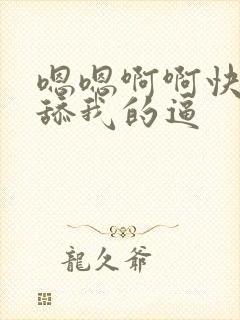 嗯嗯啊啊快
舔我的逼
龍久爺